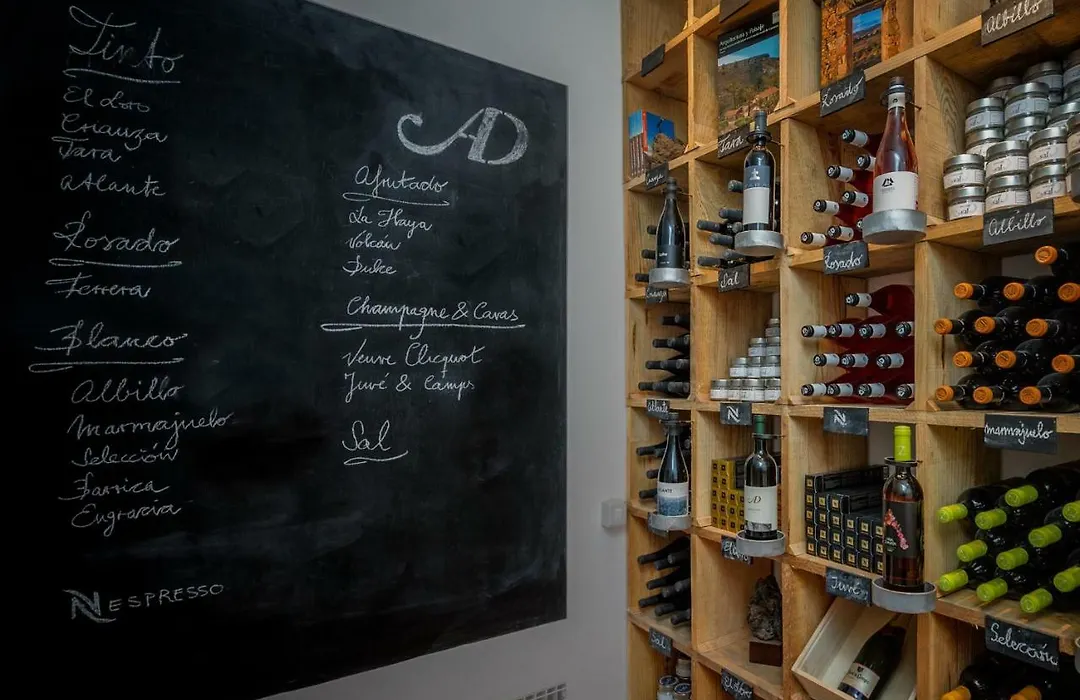 Tinto
El Loro
Crianza
Tara
Atlante
Rosado
Ferrera
Blanco
Albillo
Marmajuelo
Selección
Barrica
Engracia
NESPRESSO
AD
Afrutado
La Haya
Volcán
Dulce
Champagne & Cavas
Veuve Clicquot
Juvé & Camps
Sal
Albillo
Rosado
Tara
Albillo
Rosado
Sal
Atlante
N
N
Marmajuelo
AD
Juvé
Sal
Selección